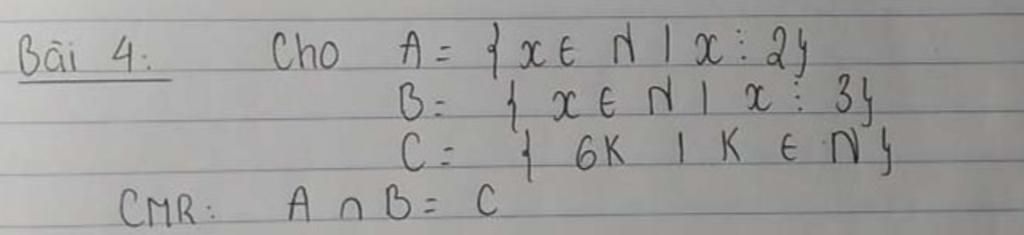 Bài 4: Cho A = { x ∈ N | x ⋮ 2}
B = { x ∈ N | x ⋮ 3}
C = { 6K | K ∈ N}
CMR: A ∩ B = C